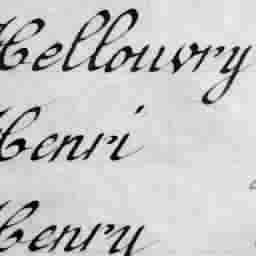 Hellouvry
Henri
Henry